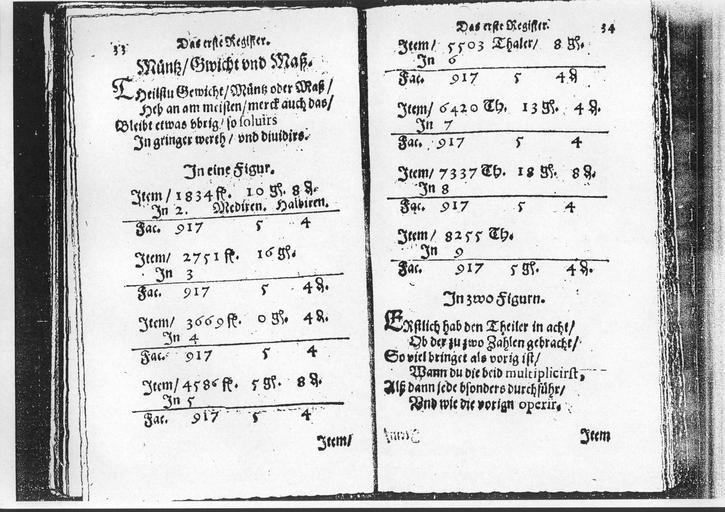 33 Das erste Register.
Müntz/ Gwicht vnd Maß.
THeilstu Gewicht/ Müntz oder Maß/
Heb an am meisten/ merck auch das/
Bleibt etwas vbrig/ so soluirs
In gringer werth/ vnd diuidirs.
In eine Figur.
Item/ 1834 fl. 10 gl. 8 ₰.
In 2. Mediren. Halbiren.
Fac. 917 5 4
Item/ 2751 fl. 16 gl.
In 3
Fac. 917 5 4 ₰.
Item/ 3669 fl. 0 gl. 4 ₰.
In 4
Fac. 917 5 4
Item/ 4586 fl. 5 gl. 8 ₰.
In 5
Fac. 917 5 4
Item/
Das erste Register. 34
Item/ 5503 Thaler/ 8 gl.
In 6
Fac. 917 5 4 ₰
Item/ 6420 Th. 13 gl. 4 ₰.
In 7
Fac. 917 5 4
Item/ 7337 Th. 18 gl. 8 ₰.
In 8
Fac. 917 5 4
Item/ 8255 Th.
In 9
Fac. 917 5 gl. 4 ₰.
In zwo Figurn.
ERstlich hab den Theiler in acht/
Ob der zu zwo Zahlen gebracht/
So viel bringet als vorig ist/
Wann du die beid multiplicirst,
Alß dann jede bsonders durchführ/
Vnd wie die vorign operir.
Item